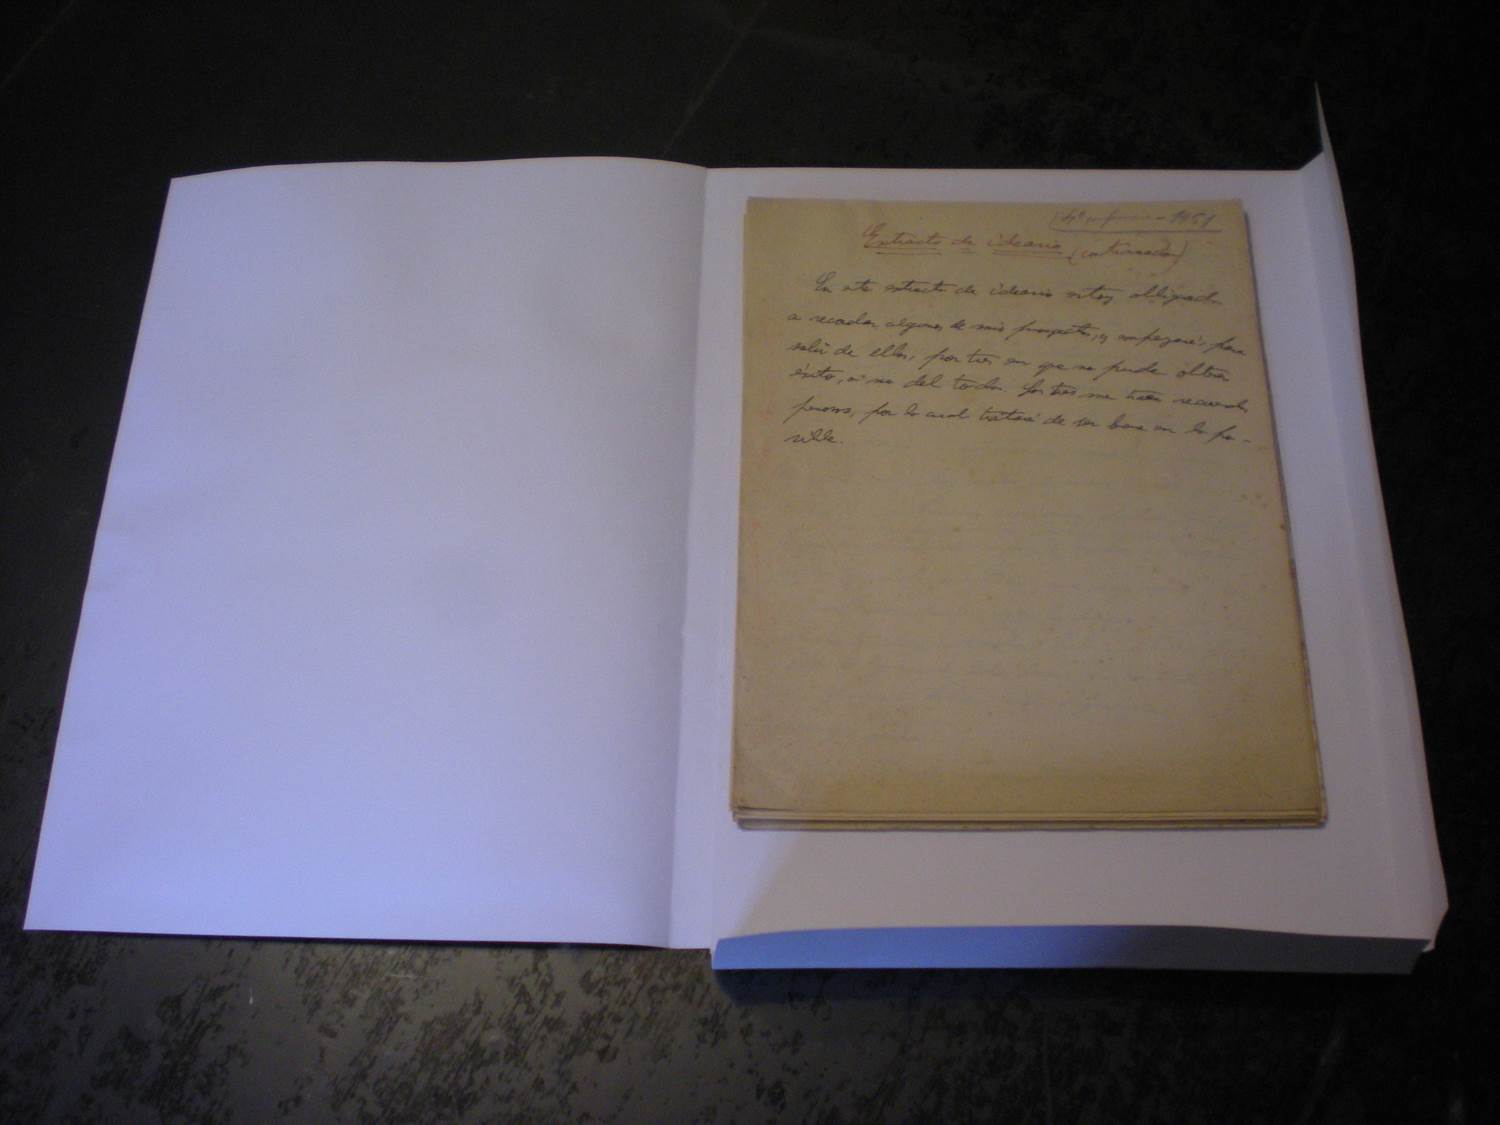 1951
Extracto de ideario (continuación)
En este extracto de ideario estoy obligado
a recordar algunos de mis proyectos, y empezaré, para
salir de ellos, por tres en que no pude obtener
éxito, o no del todo. Los tres me traen recuerdos
penosos, por lo cual trataré de ser breve en lo po-
sible.